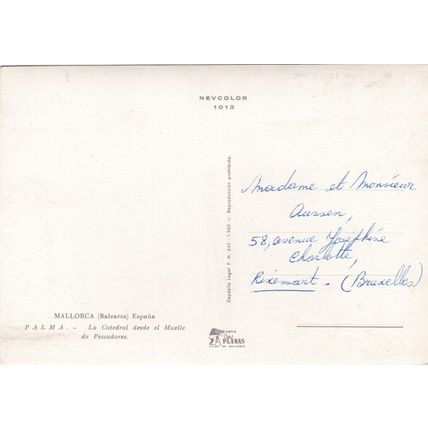 NEVCOLOR
1013
Madame et Monsieur
Aussen,
58, avenue Joséphine
Charlotte,
Rixensart - (Bruxelles)
Depósito Legal P. M. 641 - 1.960 - Reproducción prohibida.
MALLORCA (Baleares) España
PALMA. - La Catedral desde el Muelle
de Pescadores.
FOTO
PLANAS